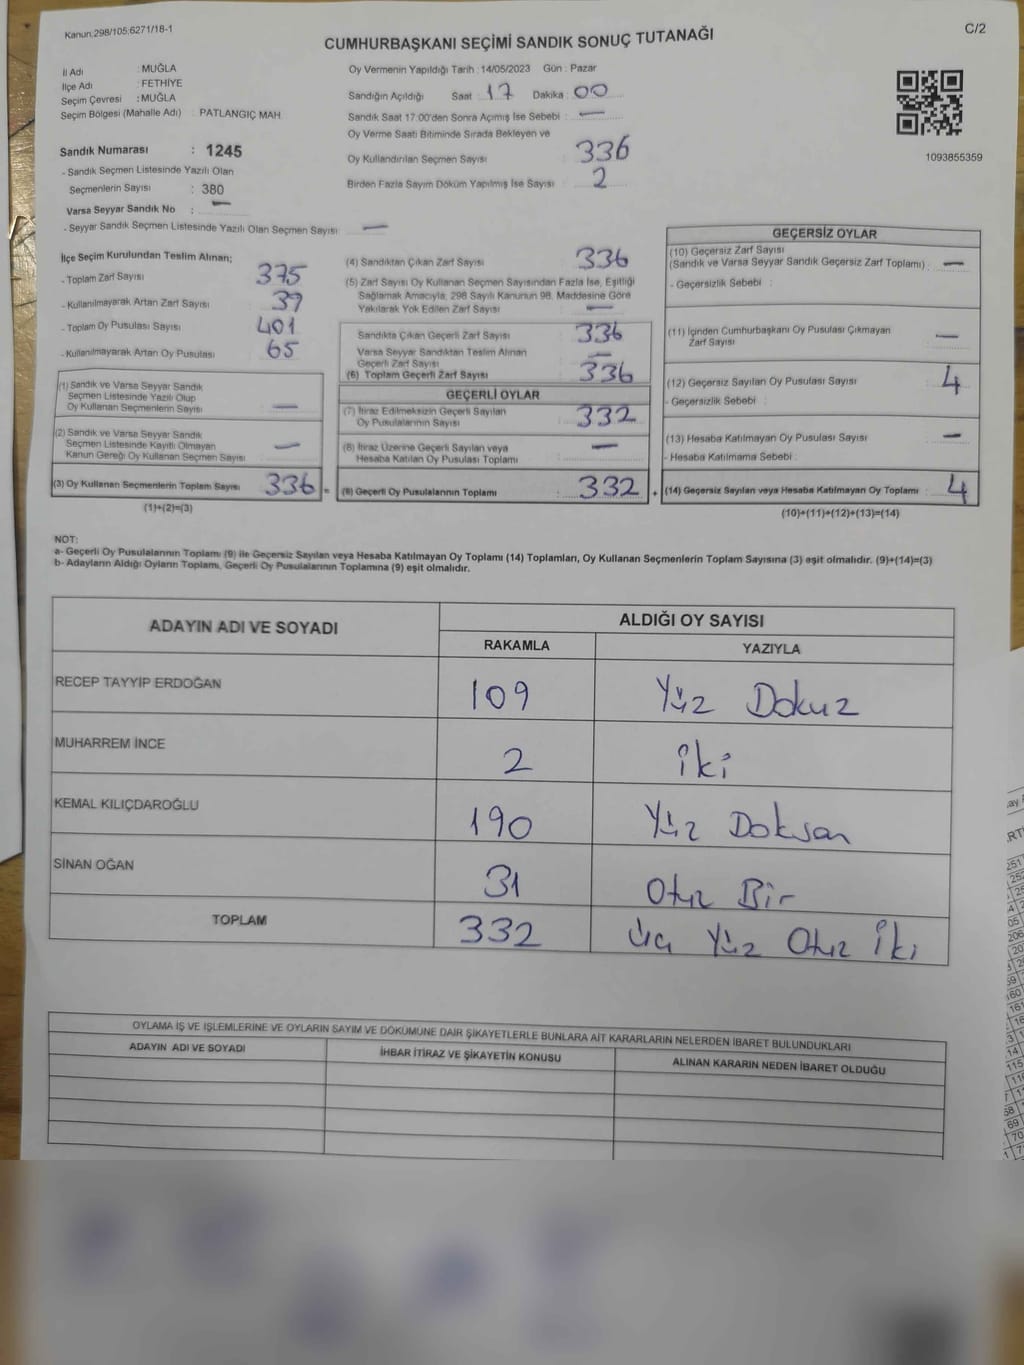 Kanun:298/105;6271/18-1
C/2
CUMHURBAŞKANI SEÇİMİ SANDIK SONUÇ TUTANAĞI
İl Adı : MUĞLA
İlçe Adı : FETHİYE
Seçim Çevresi : MUĞLA
Seçim Bölgesi (Mahalle Adı) : PATLANGIÇ MAH
Sandık Numarası : 1245
- Sandık Seçmen Listesinde Yazılı Olan
Seçmenlerin Sayısı : 380
Varsa Seyyar Sandık No : —
- Seyyar Sandık Seçmen Listesinde Yazılı Olan Seçmen Sayısı: —
Oy Vermenin Yapıldığı Tarih : 14/05/2023 Gün : Pazar
Sandığın Açıldığı Saat : 17 Dakika : 00
Sandık Saat 17:00'den Sonra Açımış İse Sebebi : —
Oy Verme Saati Bitiminde Sırada Bekleyen ve
Oy Kullandırılan Seçmen Sayısı : 336
Birden Fazla Sayım Döküm Yapılmış İse Sayısı : 2
1093855359
İlçe Seçim Kurulundan Teslim Alınan;
- Toplam Zarf Sayısı 375
- Kullanılmayarak Artan Zarf Sayısı 39
- Toplam Oy Pusulası Sayısı 401
- Kullanılmayarak Artan Oy Pusulası 65
(1) Sandık ve Varsa Seyyar Sandık
Seçmen Listesinde Yazılı Olup
Oy Kullanan Seçmenlerin Sayısı : —
(2) Sandık ve Varsa Seyyar Sandık
Seçmen Listesinde Kayıtlı Olmayan
Kanun Gereği Oy Kullanan Seçmen Sayısı : —
(3) Oy Kullanan Seçmenlerin Toplam Sayısı : 336 =
(1)+(2)=(3)
(4) Sandıktan Çıkan Zarf Sayısı : 336
(5) Zarf Sayısı Oy Kullanan Seçmen Sayısından Fazla İse, Eşitliği
Sağlamak Amacıyla, 298 Sayılı Kanunun 98. Maddesine Göre
Yakılarak Yok Edilen Zarf Sayısı : —
Sandıkta Çıkan Geçerli Zarf Sayısı : 336
Varsa Seyyar Sandıktan Teslim Alınan
Geçerli Zarf Sayısı : —
(6) Toplam Geçerli Zarf Sayısı : 336
GEÇERLİ OYLAR
(7) İtiraz Edilmeksizin Geçerli Sayılan
Oy Pusulasının Sayısı : 332
(8) İtiraz Üzerine Geçerli Sayılan veya
Hesaba Katılan Oy Pusulası Toplamı : —
(9) Geçerli Oy Pusulalarının Toplamı : 332 +
GEÇERSİZ OYLAR
(10) Geçersiz Zarf Sayısı
(Sandık ve Varsa Seyyar Sandık Geçersiz Zarf Toplamı) : —
- Geçersizlik Sebebi :
(11) İçinden Cumhurbaşkanı Oy Pusulası Çıkmayan
Zarf Sayısı : —
(12) Geçersiz Sayılan Oy Pusulası Sayısı : 4
- Geçersizlik Sebebi :
(13) Hesaba Katılmayan Oy Pusulası Sayısı : —
- Hesaba Katılmama Sebebi :
(14) Geçersiz Sayılan veya Hesaba Katılmayan Oy Toplamı : 4
(10)+(11)+(12)+(13)=(14)
NOT:
a- Geçerli Oy Pusulalarının Toplamı (9) ile Geçersiz Sayılan veya Hesaba Katılmayan Oy Toplamı (14) Toplamları, Oy Kullanan Seçmenlerin Toplam Sayısına (3) eşit olmalıdır. (9)+(14)=(3)
b- Adayların Aldığı Oyların Toplamı, Geçerli Oy Pusulalarının Toplamına (9) eşit olmalıdır.
ADAYIN ADI VE SOYADI
ALDIĞI OY SAYISI
RAKAMLA YAZIYLA
RECEP TAYYİP ERDOĞAN 109 Yüz Dokuz
MUHARREM İNCE 2 iki
KEMAL KILIÇDAROĞLU 190 Yüz Doksan
SİNAN OĞAN 31 Otuz Bir
TOPLAM 332 üç Yüz Otuz İki
OYLAMA İŞ VE İŞLEMLERİNE VE OYLARIN SAYIM VE DÖKÜMÜNE DAİR ŞİKAYETLERLE BUNLARA AİT KARARLARIN NELERDEN İBARET BULUNDUKLARI
ADAYIN ADI VE SOYADI İHBAR İTİRAZ VE ŞİKAYETİN KONUSU ALINAN KARARIN NEDEN İBARET OLDUĞU